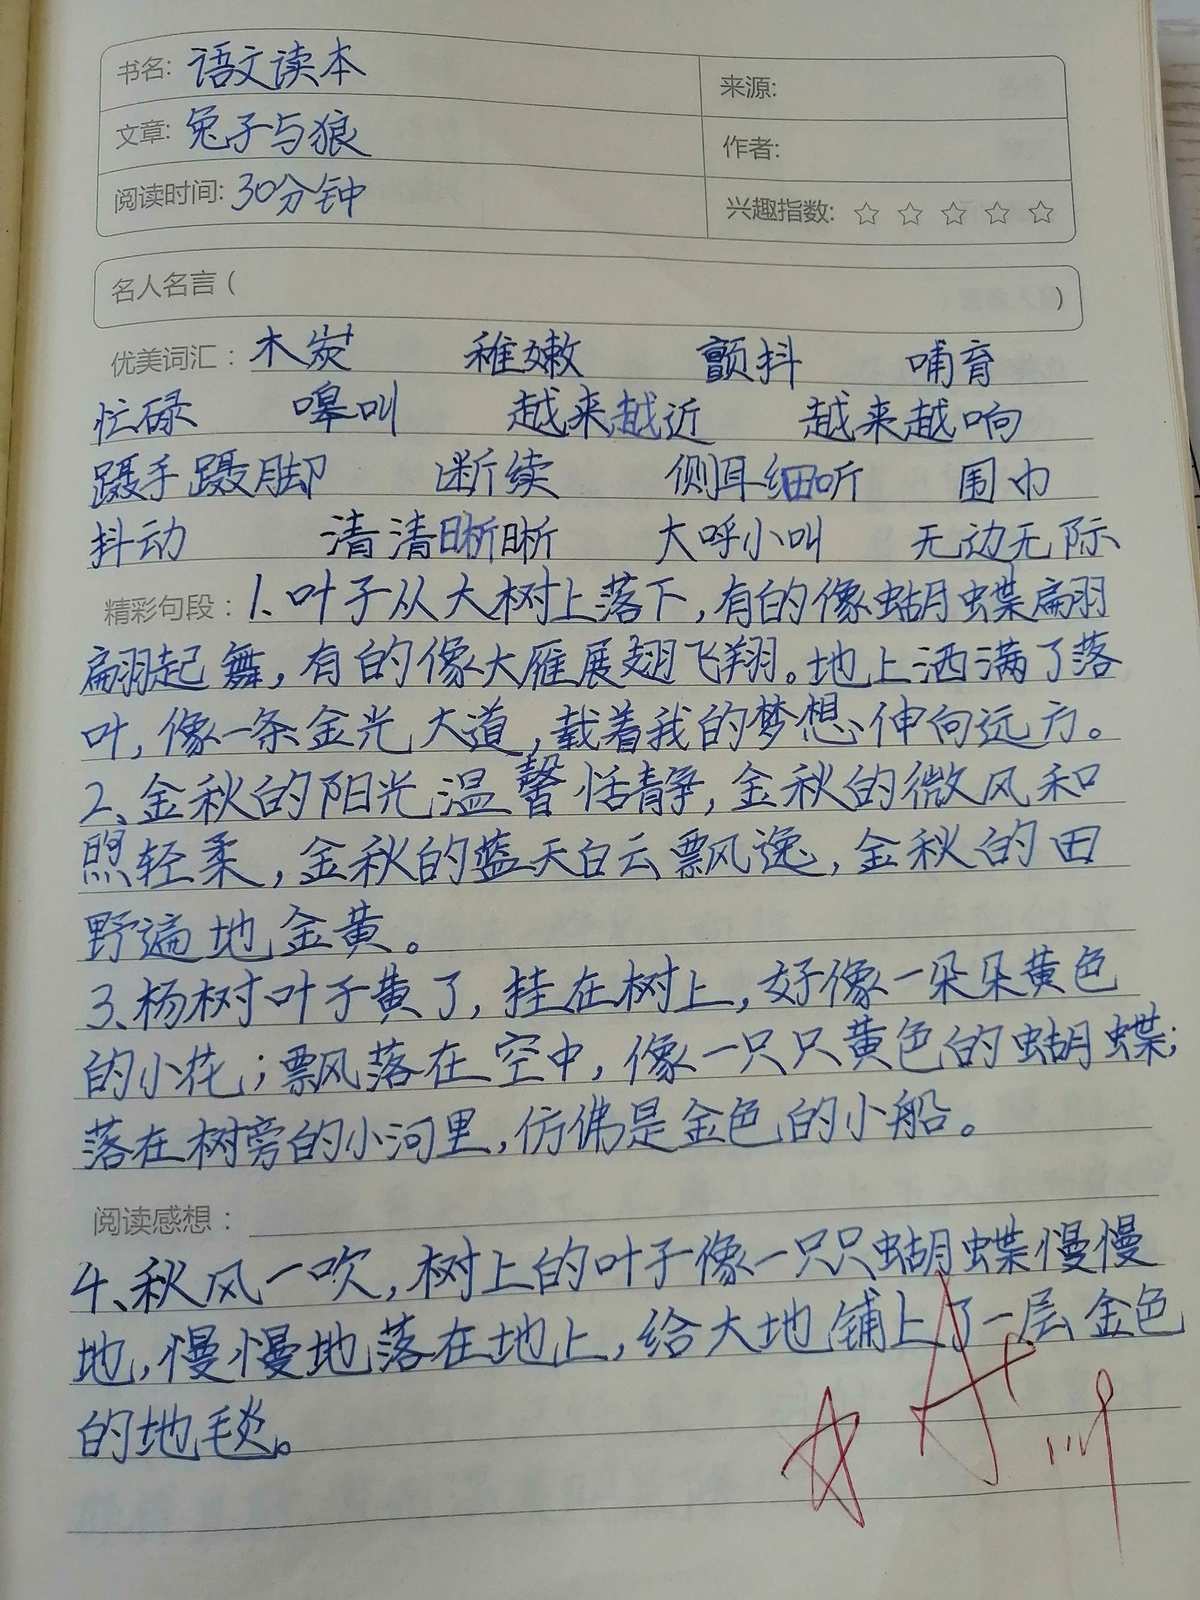 书名: 语文读本
来源:
文章: 兔子与狼
作者:
阅读时间: 30分钟
兴趣指数: ☆ ☆ ☆ ☆ ☆
名人名言 ( )
优美词汇: 木炭 稚嫩 颤抖 哺育
忙碌 嗥叫 越来越近 越来越响
蹑手蹑脚 断续 侧耳细听 围巾
抖动 清清晰晰 大呼小叫 无边无际
精彩句段: 1、叶子从大树上落下,有的像蝴蝶翩
翩起舞,有的像大雁展翅飞翔。地上洒满了落
叶,像一条金光大道,载着我的梦想伸向远方。
2、金秋的阳光温馨恬静,金秋的微风和
煦轻柔,金秋的蓝天白云飘逸,金秋的田
野遍地金黄。
3、杨树叶子黄了,挂在树上,好像一朵朵黄色
的小花;飘落在空中,像一只只黄色的蝴蝶;
落在树旁的小河里,仿佛是金色的小船。
阅读感想:
4、秋风一吹,树上的叶子像一只只蝴蝶慢慢
地,慢慢地落在地上,给大地铺上了一层金色
的地毯。
☆ A+